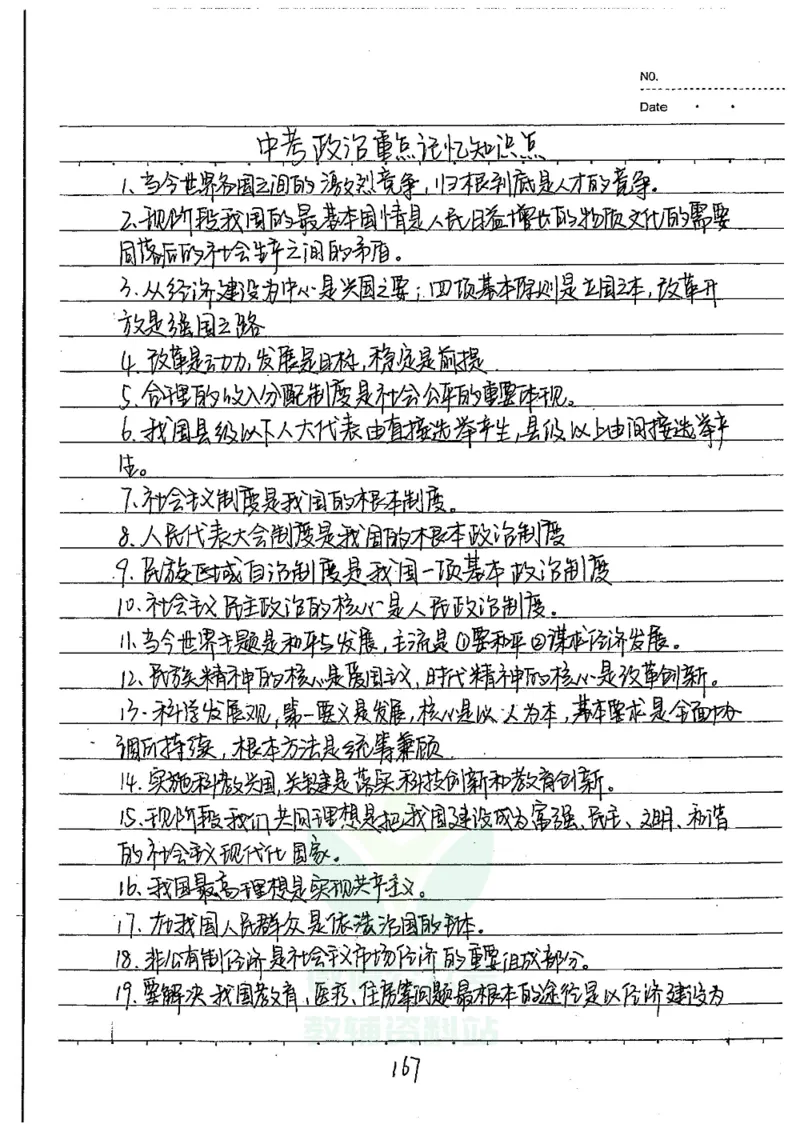 NO.
Date
中考政治重点记忆知识点
1、当今世界各国之间的激烈竞争，归根到底是人才的竞争。
2、现阶段我国的最基本国情是人民日益增长的物质文化的需要
同落后的社会生产之间的矛盾。
3、从经济建设为中心是兴国之要；四项基本原则是立国之本，改革开
放是强国之路
4、改革是动力，发展是目标，稳定是前提
5、合理的收入分配制度是社会公平的重要体现。
6、我国县级以下人大代表由直接选举产生，县级以上由间接选举产
生。
7、社会主义制度是我国的根本制度。
8、人民代表大会制度是我国的根本政治制度
9、民族区域自治制度是我国一项基本政治制度
10、社会主义民主政治的核心是人民政治制度。
11、当今世界主题是和平与发展，主流是①要和平②谋求经济发展。
12、民族精神的核心是爱国主义，时代精神的核心是改革创新。
13、科学发展观，第一要义是发展，核心是以人为本，基本要求是全面协
调可持续，根本方法是统筹兼顾
14、实施科教兴国，关键是落实科技创新和教育创新。
15、现阶段我们共同理想是把我国建设成为富强、民主、文明、和谐
的社会主义现代化国家。
16、我国最高理想是实现共产主义。
17、在我国人民群众是依法治国的主体。
18、非公有制经济是社会主义市场经济的重要组成部分。
19、要解决我国教育、医疗、住房等问题最根本的途径是以经济建设为
教辅资料站
167